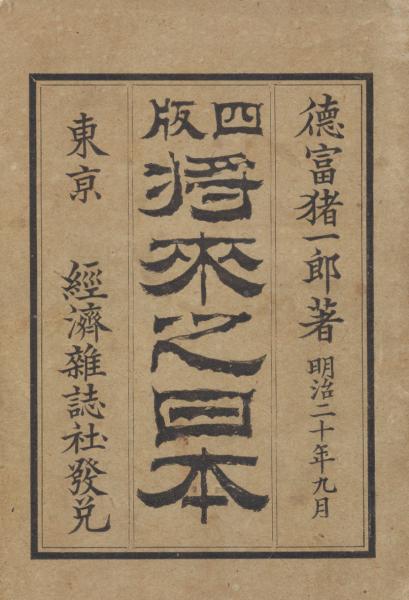 德富猪一郎著 明治二十年九月
四版
將來之日本
東京 經濟雜誌社發兌